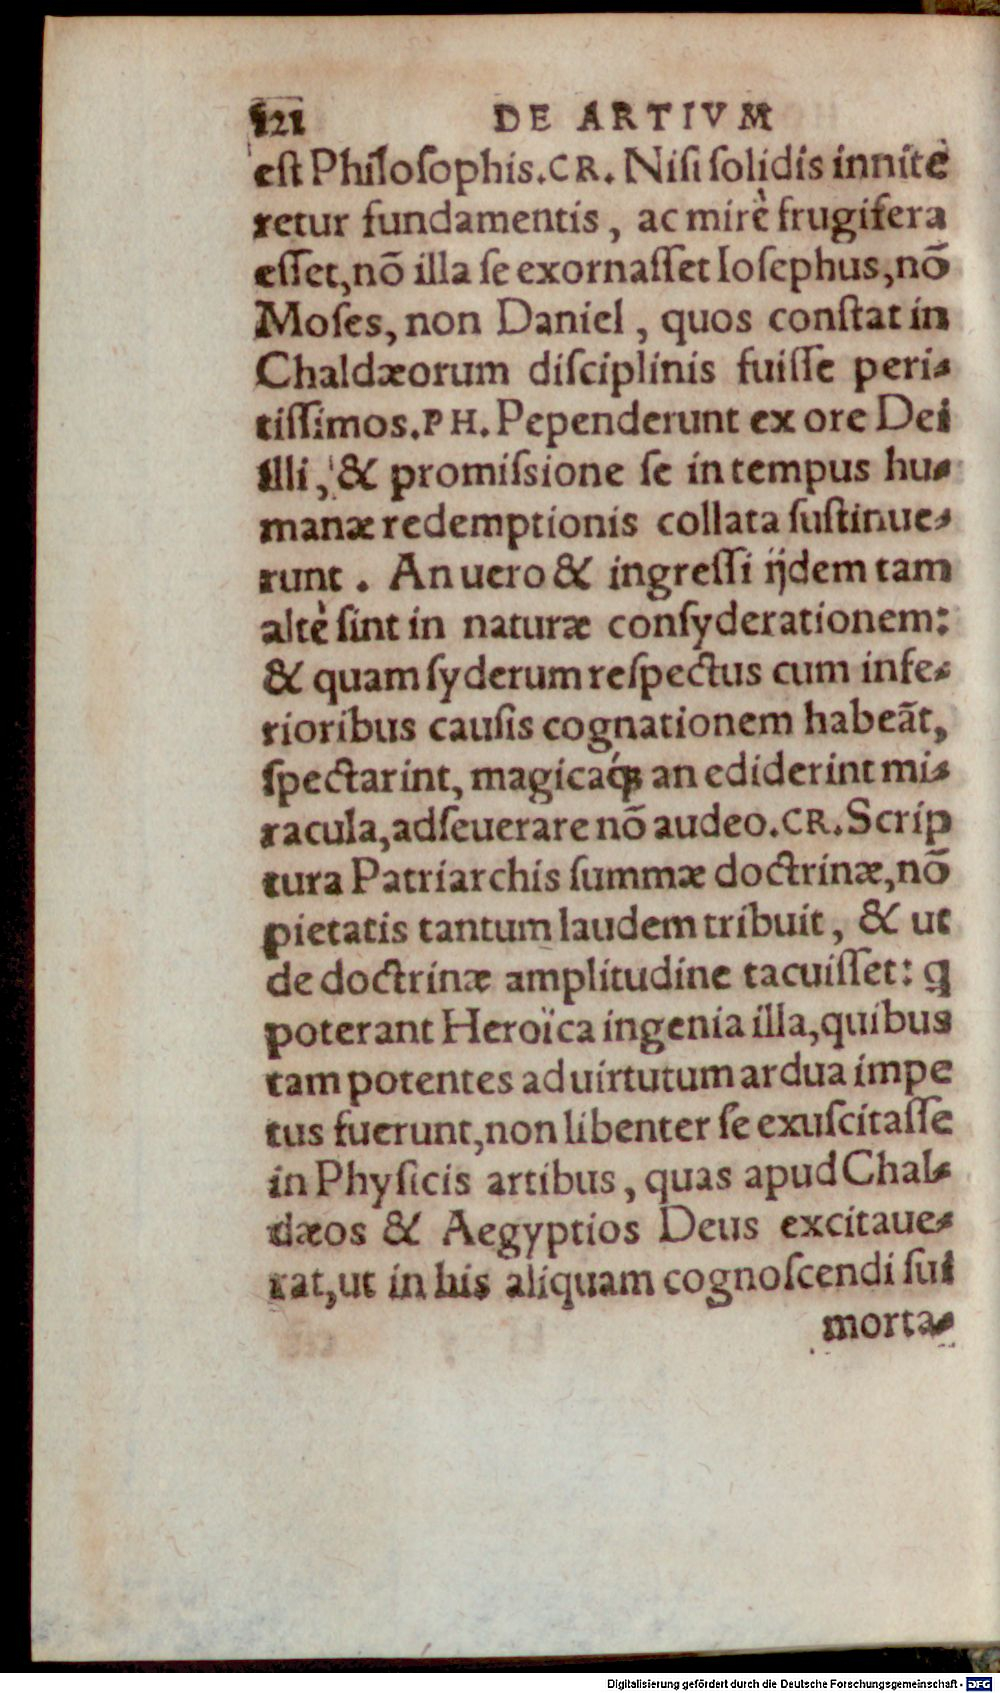 121 DE ARTIVM
est Philosophis. CR. Nisi solidis innite
retur fundamentis, ac mirè frugifera
esset, nõ illa se exornasset Iosephus, nõ
Moses, non Daniel, quos constat in
Chaldæorum disciplinis fuisse peri-
tissimos. PH. Pependerunt ex ore Dei
illi, & promissione se in tempus hu-
manæ redemptionis collata sustinue-
runt. An uero & ingressi ijdem tam
altè sint in naturæ consyderationem:
& quam syderum respectus cum infe-
rioribus causis cognationem habeãt,
spectarint, magicaq́; an ediderint mi-
racula, adseuerare nõ audeo. CR. Scrip
tura Patriarchis summæ doctrinæ, nõ
pietatis tantum laudem tribuit, & ut
de doctrinæ amplitudine tacuisset: q
poterant Heroïca ingenia illa, quibus
tam potentes ad uirtutum ardua impe
tus fuerunt, non libenter se exuscitasse
in Physicis artibus, quas apud Chal-
dæos & Aegyptios Deus excitaue-
rat, ut in his aliquam cognoscendi sui
morta-
Digitalisierung gefördert durch die Deutsche Forschungsgemeinschaft - DFG